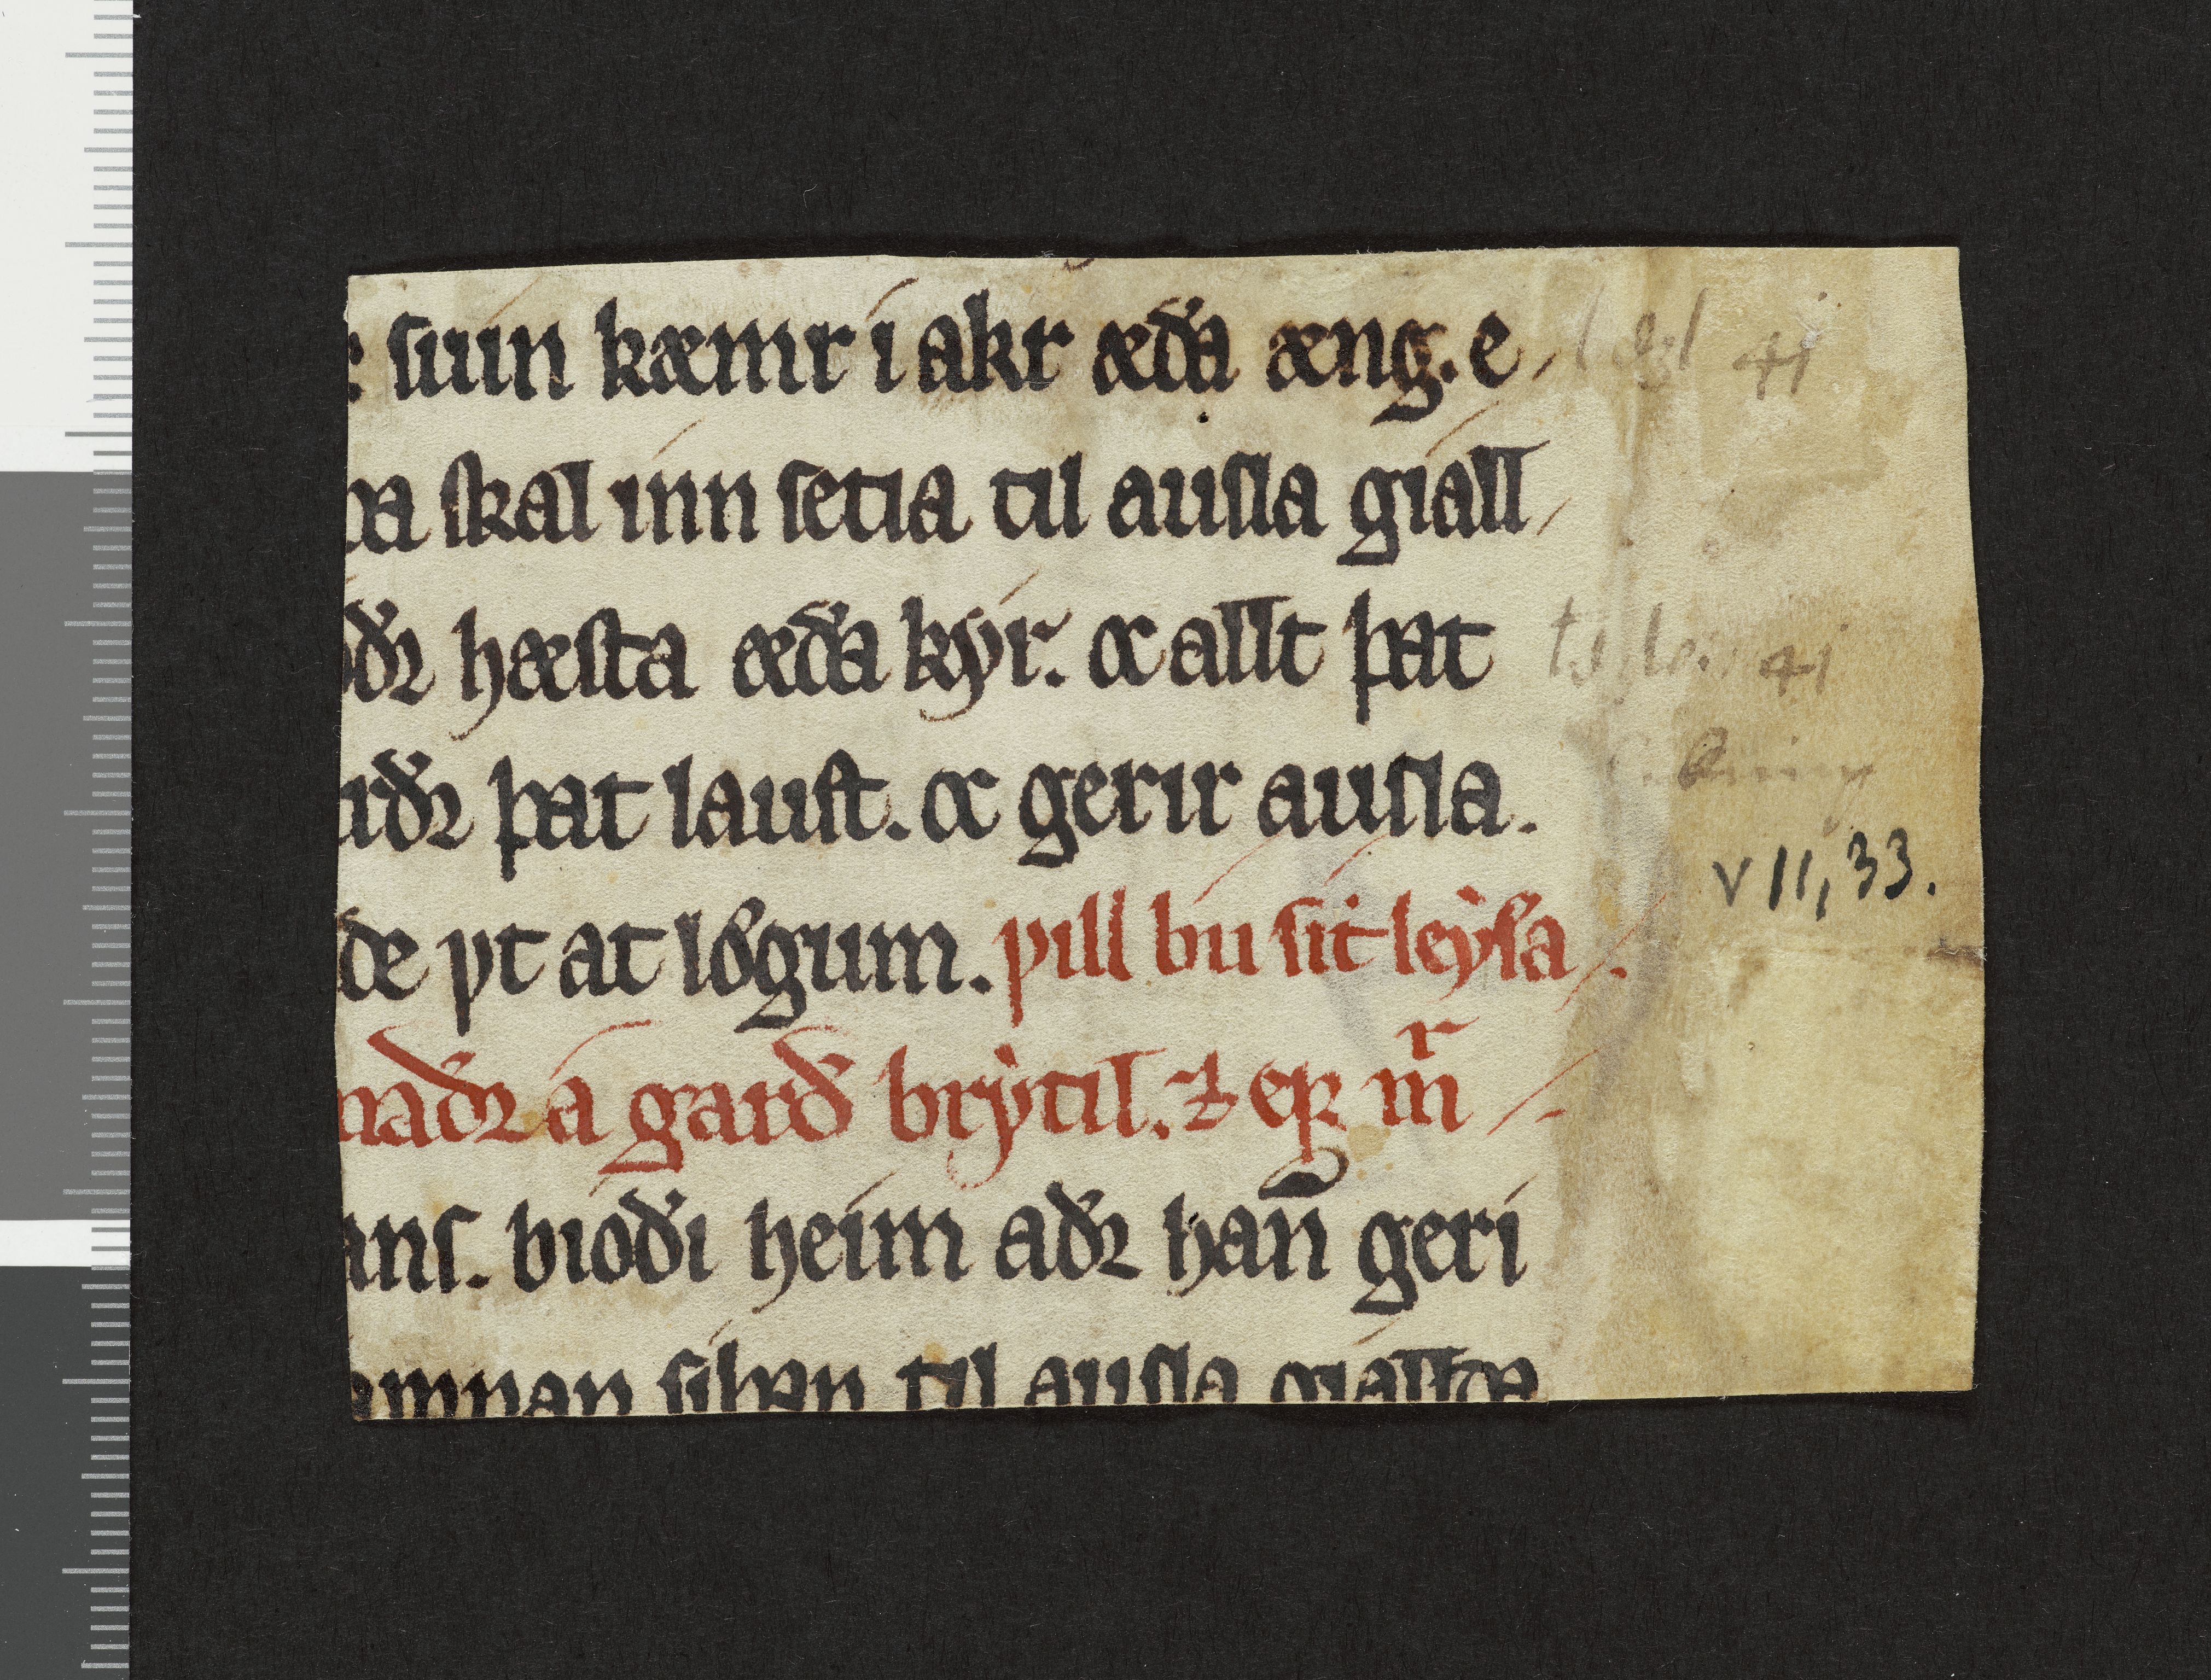 : suin kæmr i akr æða æng. e
ra skal inn setia til ausla giall
oðꝛ hæsta æða kyr. oc allt þat
rðꝛ þat laust. oc gerir ausla.
de ꝩt at lꝍgum. ꝩill bu sit leysa
naðꝛ a garð brytil. ⁊ eꝼꝛ mͬ
ans. bioði heim aðꝛ han̅ geri
amnan silvan til ausla gialldæ
41
41
VII, 33.